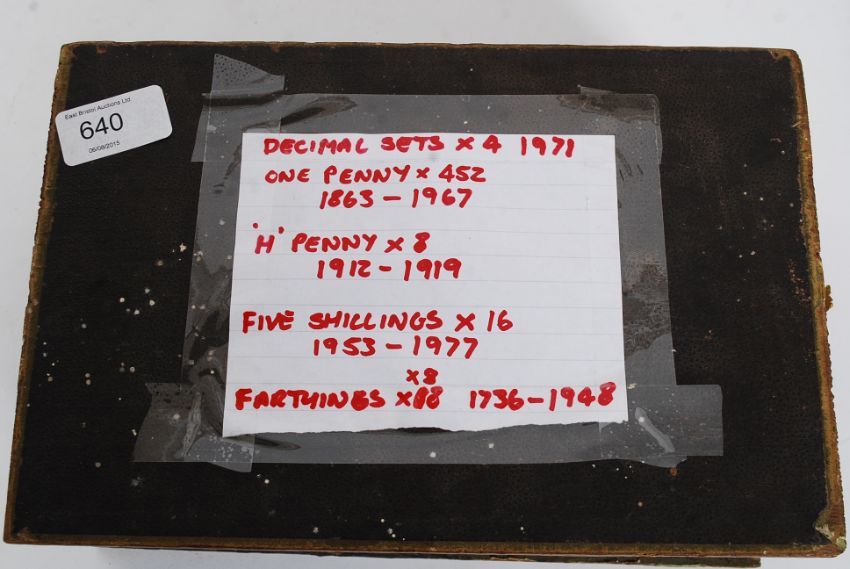 East Bristol Auctions Ltd
640
06/08/2015
DECIMAL SETS x 4 1971
ONE PENNY x 452
1863 - 1967
'H' PENNY x 8
1912 - 1919
FIVE SHILLINGS x 16
1953 - 1977
x8
FARTHINGS x 18 1736-1948